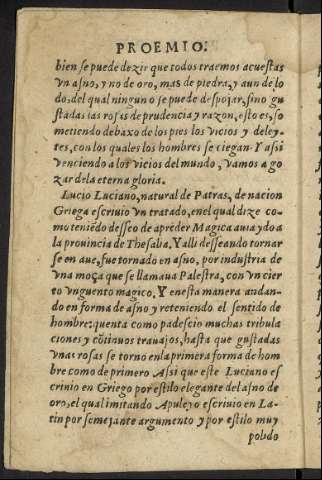 PROEMIO.
bien se puede dezir que todos traemos acuestas
vn asno, y no de oro, mas de piedra, y aun de lo
do, del qual ninguno se puede despojar, sino gu
stadas las rosas de prudencia y razon, esto es, so
metiendo debaxo de los pies los vicios y deley-
tes, con los quales los hombres se ciegan. Y assi
venciendo a los vicios del mundo, vamos a go
zar dela eterna gloria.
Lucio Luciano, natural de Patras, de nacion
Griega escriuio vn tratado, enel qual dize co-
mo teniẽdo desseo de aprẽder Magica auia ydo a
la prouincia de Thesaba. Y alli desseando tornar
se en aue, fue tornado en asno, por industria de
vna moça que se llamaua Palestra, con vn cier
to vnguento magico. Y enesta manera andan-
do en forma de asno y reteniendo el sentido de
hombre: quenta como padescio muchas tribula
ciones y cõtinuos trauajos, hasta que gustadas
vnas rosas se torno enla primera forma de hom
bre como de primero Assi que este Luciano es
criuio en Griego por estilo elegante del asno de
oro, el qual imitando Apuleyo escriuio en La-
tin por semejante argumento y por estilo muy
polido